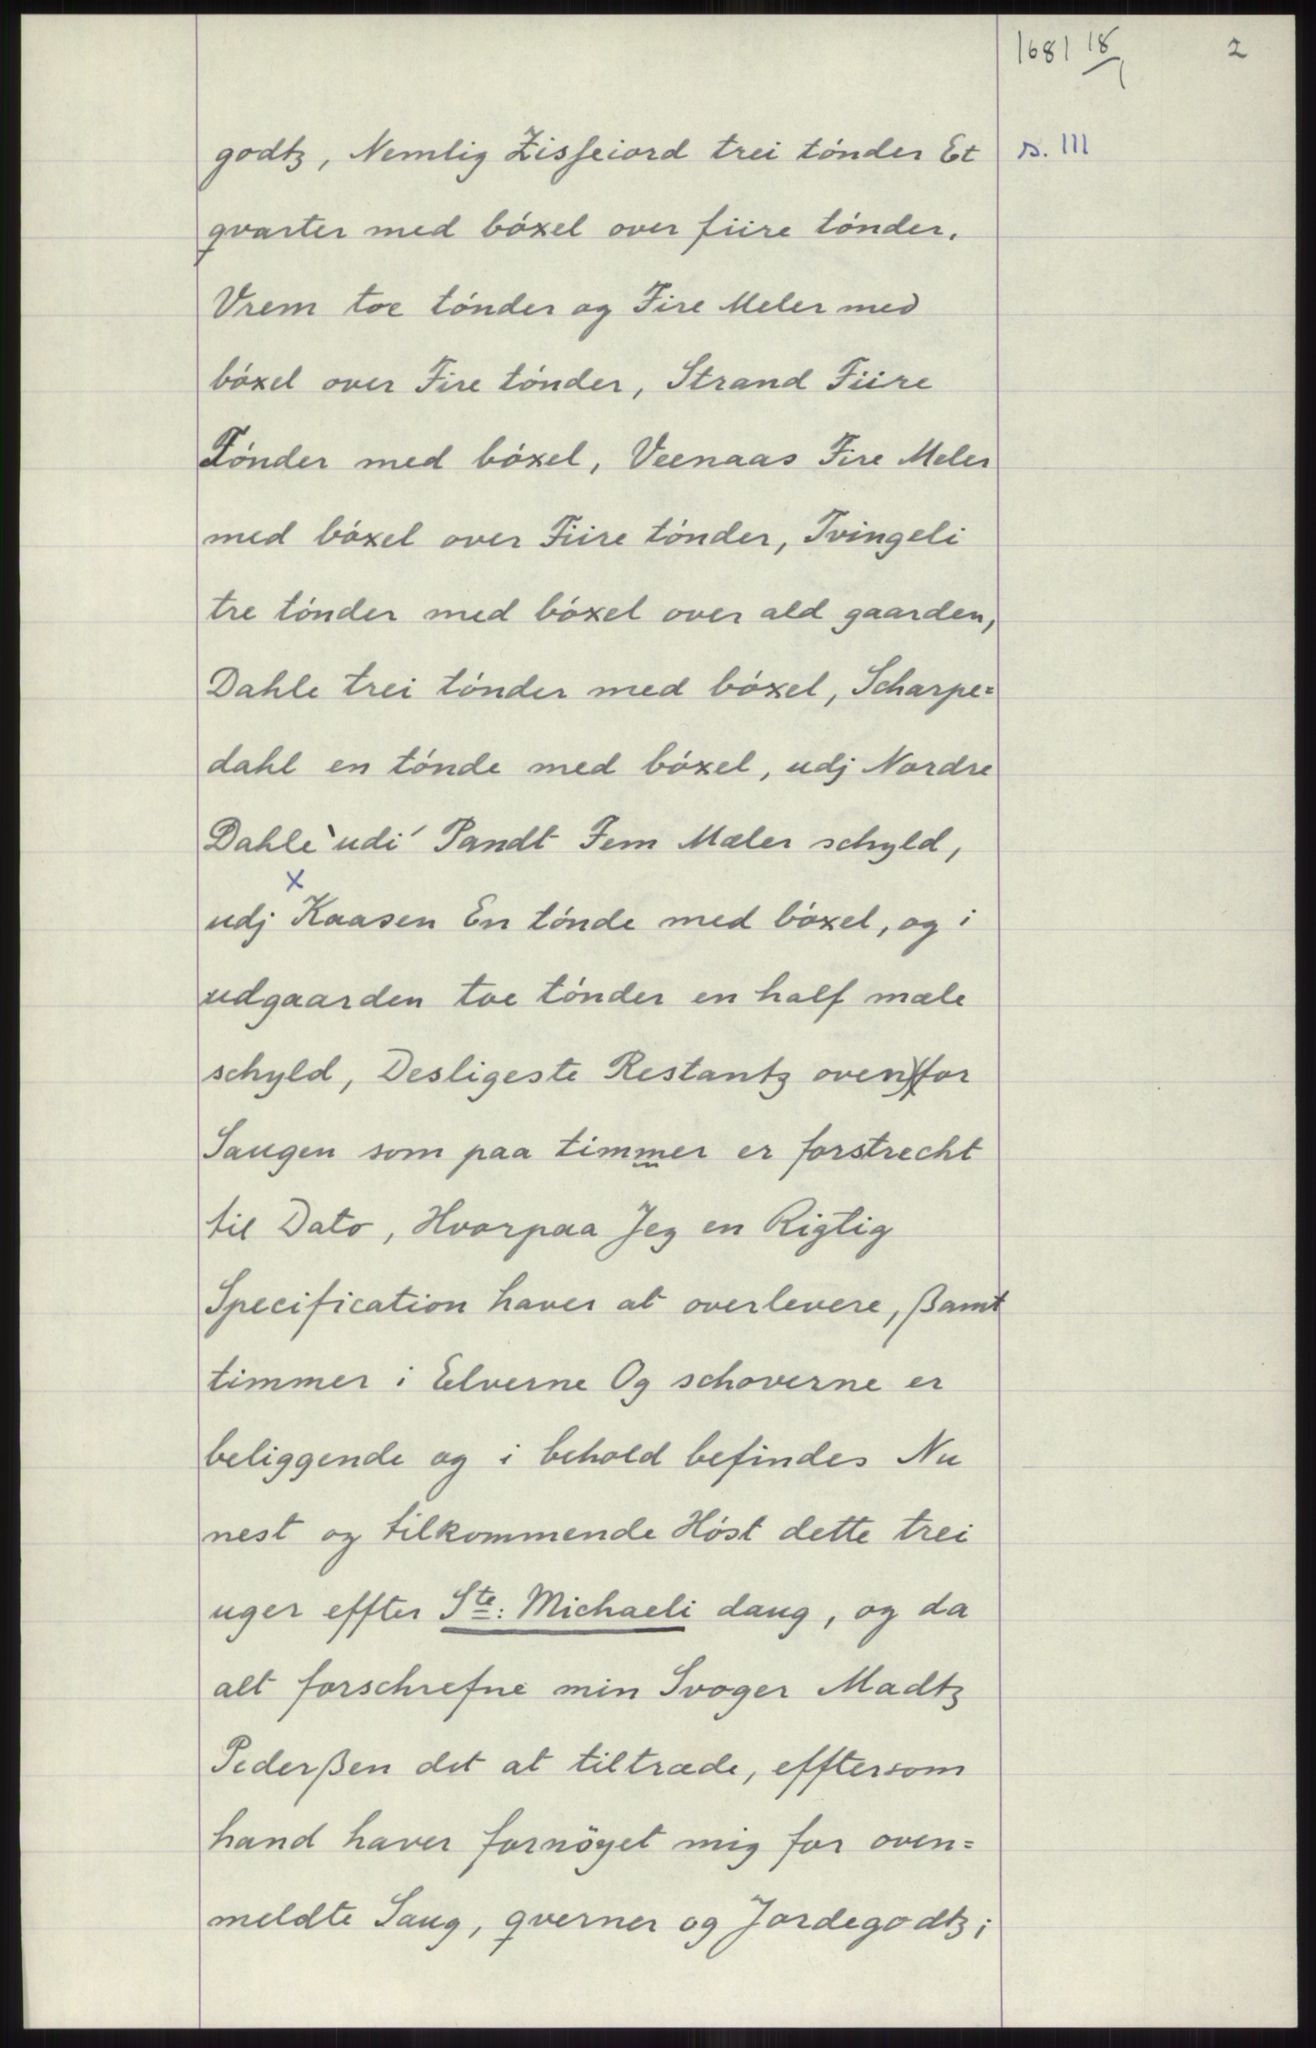 1681 18/1
2
s. 111
godtz, Nemlig Zisfeiord trei tónder Et
qvarter med bóxel over fiire tónder.
Vrem toe tónder og Fire Meler med
bóxel over Fire tónder, Strand Fiire
Tónder med bóxel, Veenaas Fire Meler
med bóxel over Fiire tónder, Tvingeli
tre tónder med bóxel over ald gaarden,
Dahle trei tónder med bóxel, Scharpe=
dahl en tónde med bóxel, udj Nordre
Dahle `udi´ Pandt Fem Mæler schyld,
x
udj Kaasen En tónde med bóxel, og i
udgaarden toe tónder en half mæle
schyld, Desligeste Restantz oven)(for
Saugen som paa timmer er forstrecht
til Dato, Hvorpaa Jeg en Rigtig
Specification haver at overlevere, ßamt
timmer i Eelverne Og schoverne er
beliggende og i behold befindes Nu
nest og tilkommende Hóst dette trei
uger effter Ste: Michaeli daug, og da
alt forschrefne min Svoger Madtz
Pederßen det at tiltræde, efftersom
hand haver fornöyet mig for oven=
meldte Saug, qverner og Jordegodtz;